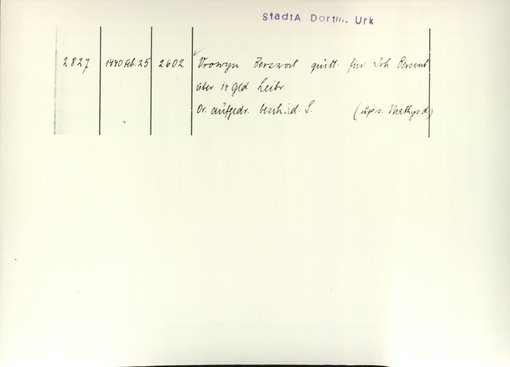 StadtA Dortm. Urk
2827 1440 Feb. 25 2602 Vrowyn Berswort quitt. für Joh Berswort
über 14 Gld Leibr.
Or. aufgedr. besch. id S. (up s. Mathys d)